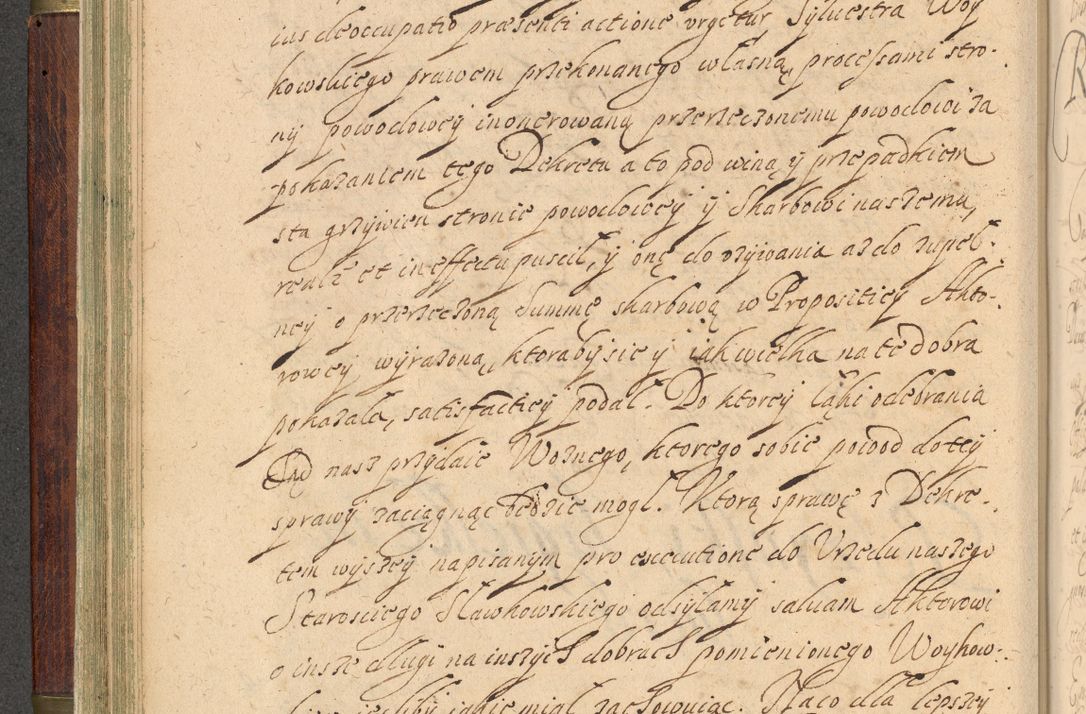 ius deoccupatio præsenti actione vrgetur Sylvestra Woy
kowskiego prawem przekonanego własną, processami stro-
ny powodowey inonerowaną przerzeczonemu powodowi za
pokazaniem tego Dekretu a to pod winą y przepadkiem
sta grzywien stronie powodowey y Skarbowi naszemu,
realr et in effectu puscił, y onę do vzywania aż do zupeł-
ney o przerzeczoną Summę skarbową w Propositiey Akto-
rowey wyrażoną, ktoraby sie y iak wielka na te dobra
pokazała, satisfactiey podał. Do ktorey łąki odebrania
Sąd nasz przydaie Woznego, ktorego sobie powod do tey
sprawy zaciągnąc będzie mogł. Ktorą sprawę z Dekre-
tem wyszey napisanym pro executione do Vrzędu naszego
Starosciego Sławkowskiego odsyłamy saluam Aktorowi
o insze długi na inszych dobrach pomienionego Woykow-
iesliby iakie miał zachowuiąc. Na co dla lepszey